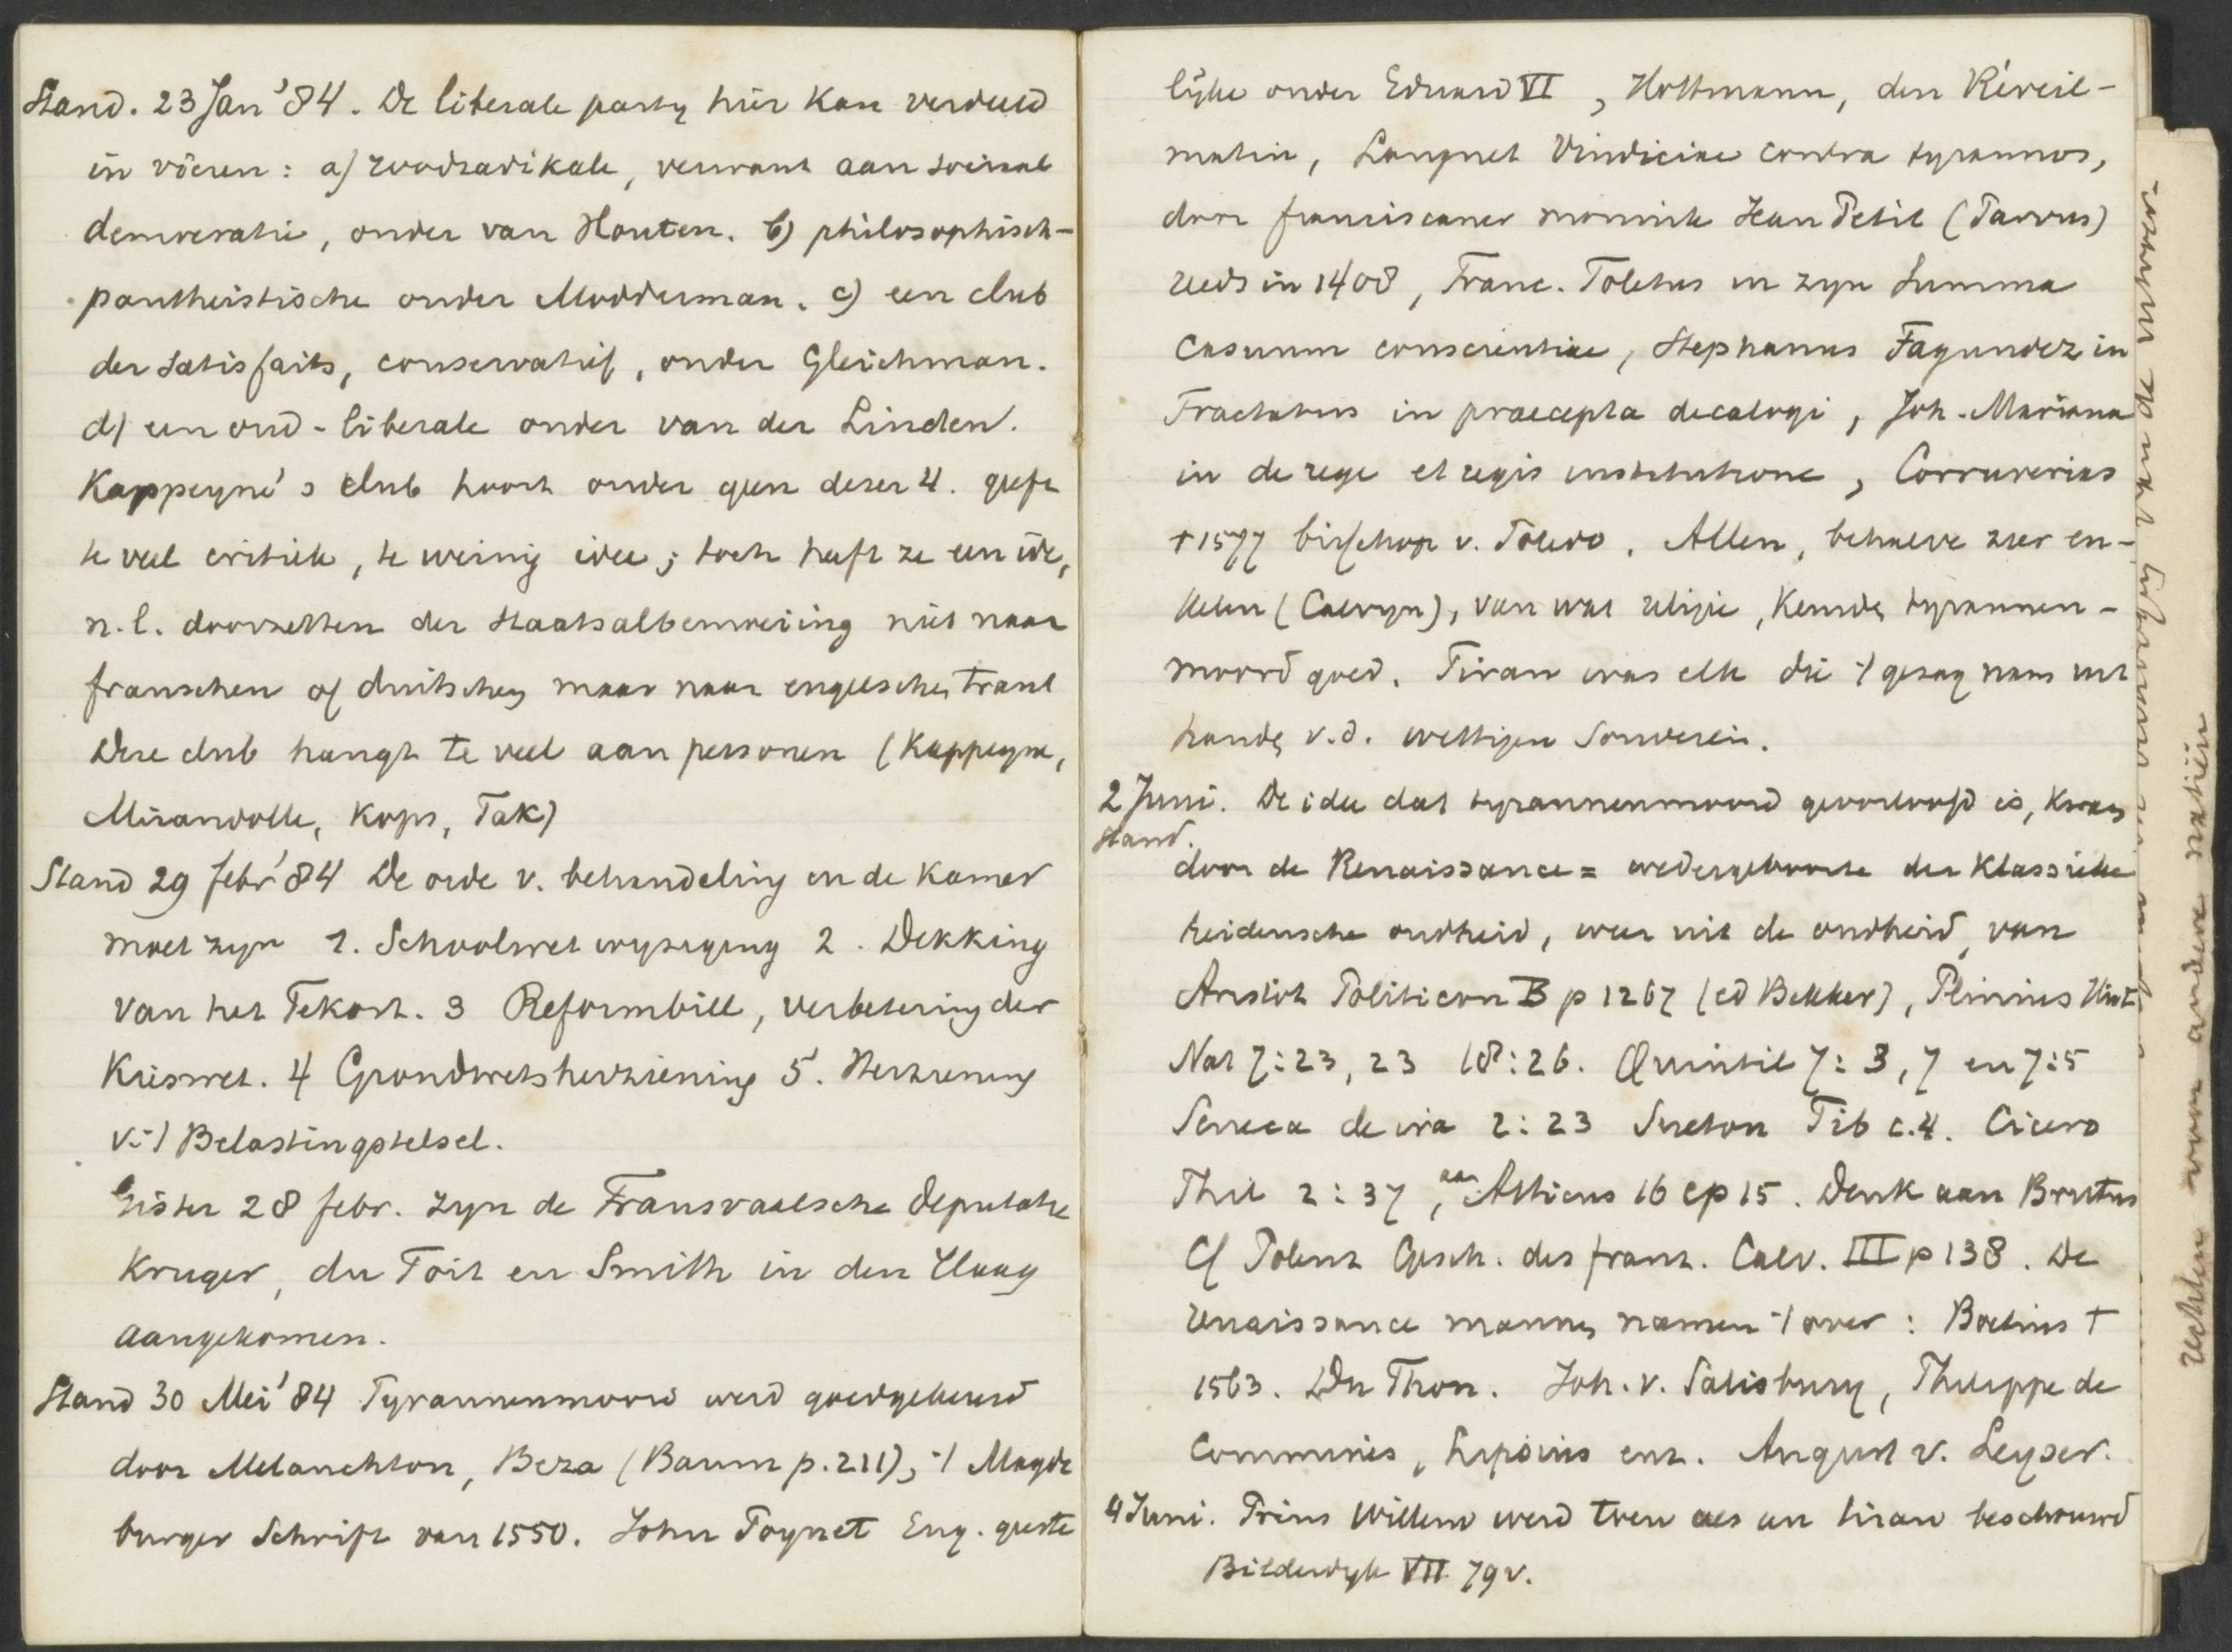 Stand. 23 Jan '84. De liberale party hier kan verdeeld
in vieren: a) roodradikale, verwant aan sociaal
democratie, onder van Houten. b) philosophisch-
pantheistische onder Modderman. c) een club
der satisfaits, conservatief, onder Gleichman.
d) een oud-liberale onder van der Linden.
Kappeyne's club hoort onder geen dezer 4. geeft
te veel critiek, te weinig idee; toch heeft ze een idee,
n.l. doorzetten der Staatsalbemoeiing niet naar
franschen of duitschen maar naar engelschen trant
Deze club hangt te veel aan personen (Kappeyne,
Mirandolle, Kops, Tak)
Stand 29 febr '84 De orde v. behandeling in de Kamer
moet zyn 1. Schoolwet wyziging 2. Dekking
van het Tekort. 3 Reformbill, verbetering der
Kieswet. 4 Grondwetsherziening 5. Herziening
v. -/ Belastingstelsel.
Gister 28 febr. zyn de Transvaalsche deputatie
Kruger, du Toit en Smith in den Haag
aangekomen.
Stand 30 Mei '84 Tyrannenmoord werd goedgekeurd
door Melanchton, Beza (Baum p. 211), -/ Magde
burger Schrift van 1550. John Poynet Eng. geeste
lyke onder Eduard VI, Hottmann, den Réveil-
matin, Languet Vindiciae contra tyrannos,
door franciscaner monnik Jean Petit (Parvus)
reeds in 1408, Franc. Toletus in zyn Summa
Casuum conscientiae, Stephanus Fagundez in
Tractatus in praecepta decalogi, Joh. Mariana
in de rege et regis institutione, Corruverias
† 1577 bisschop v. Toledo. Allen, behalve zeer en-
kelen (Calvyn), van wat religie, keurde tyrannen-
moord goed. Tiran was elk die -/ gezag nam uit
handen v.d. wettigen Souverein.
2 Juni. De idee dat tyrannenmoord geoorloofd is, kwam
Stand.
door de Renaissance = wedergeboorte der klassieke
heidensche oudheid, weer uit de oudheid, van
Aristot Politicon B p 1267 (ed Bekker), Plinius Hist
Nat 7:23, 23 18:26. Quintil 7:3, 7 en 7:5
Seneca de ira 2:23 Sueton Tib c.4. Cicero
Phil 2:37, aan Atticus 16 ep 15. Denk aan Brutus
Cf Polenz Gesch. des franz. Calv. III p 138. De
renaissance mannen namen -/ over: Boetius †
1563. Du Thou. Joh. v. Salisbury, Philippe de
Commines, Lipsius enz. August v. Leyser.
4 Juni. Prins Willem werd toen als een tiran beschouwd
Bilderdyk VII 79 v.
rechten voor andere natiën